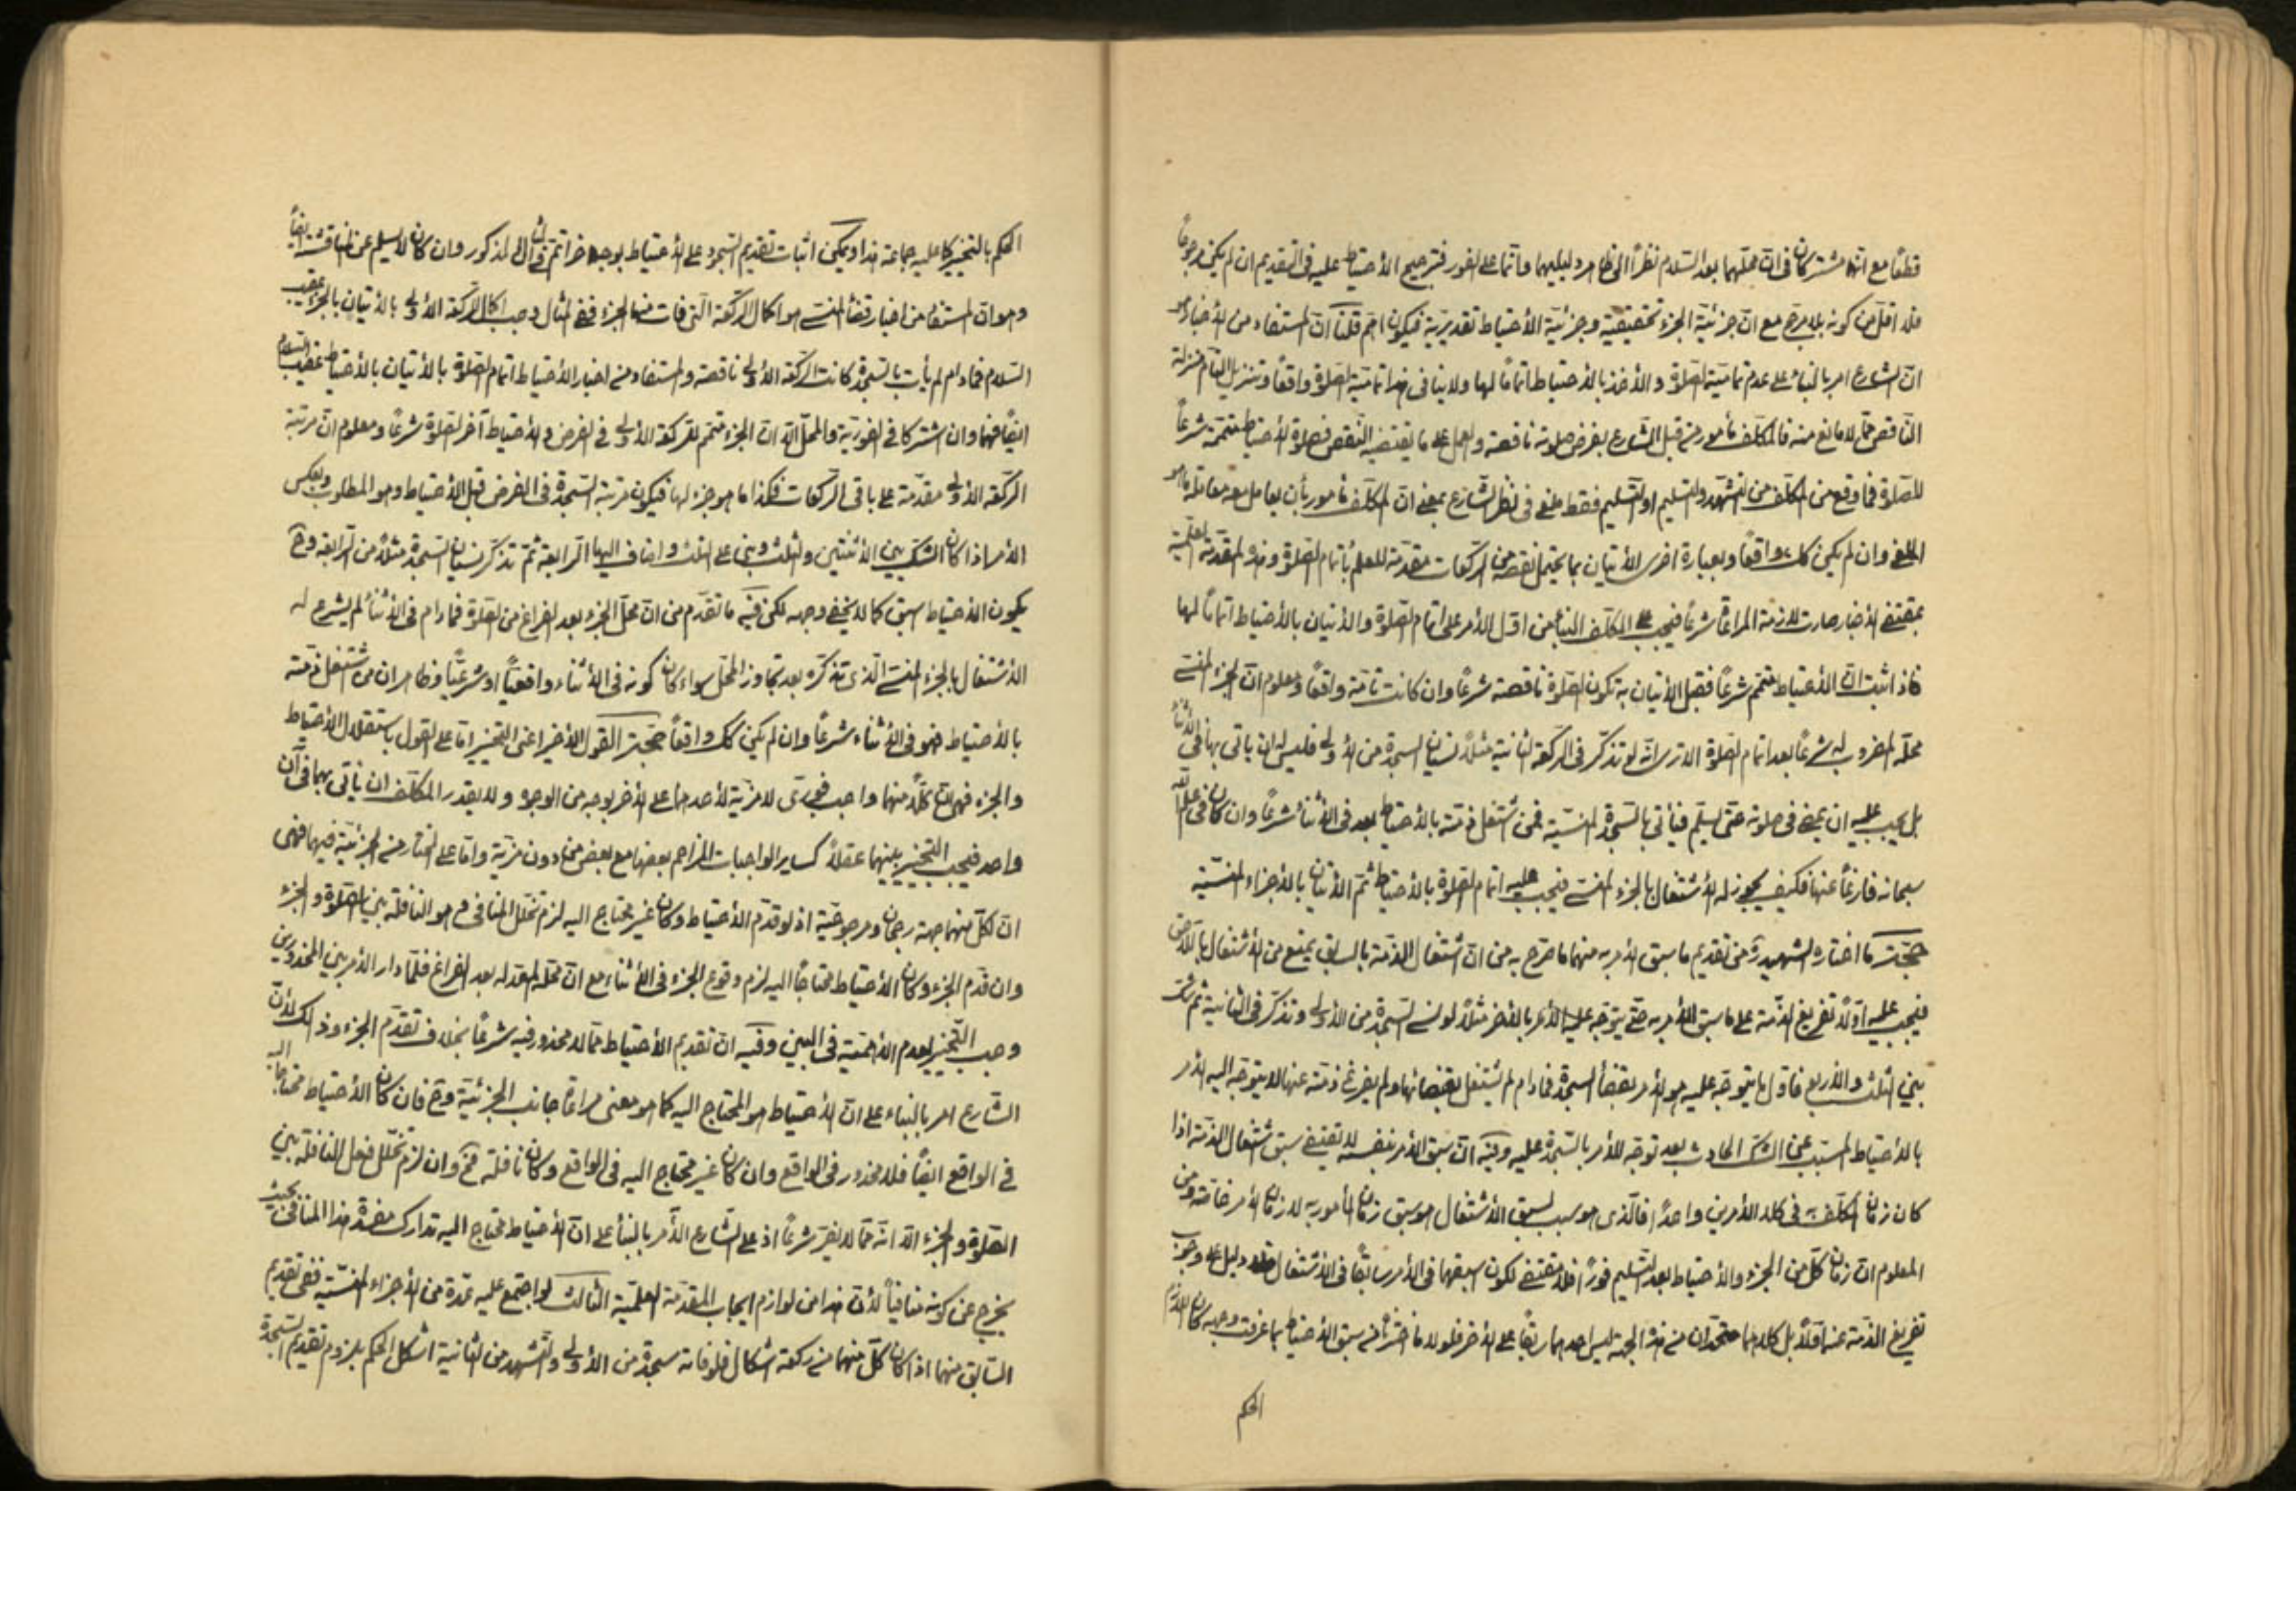 قطعًا مع انهما مشتركان فى ان محلهما بعد السلام نظرًا الى ظاهر دليليهما واتما على الفور فترجيح الاحتياط عليه فى التقديم ان لم يكن مرجوحًا
فلا اقل من كونه بلا مرجح مع ان جزئية الجزء تحقيقية وجزئية الاحتياط تقديرية فيكون اهم قلنا ان المستفاد من الاخبار هو
ان الشارع امر بالبناء على عدم تمامية الصلوة والاخذ بالاحتياط اتمامًا لها ولا ينافى هذا تمامية الصلوة واقعًا وتنزيل التام منزلة
الناقص مما لا مانع منه فالمكلف مأمور من قبل الشارع بفرض صلوته ناقصة والعمل على ما يقتضيه النقص فصلوة الاحتياط متممة شرعًا
للصلوة فما وقع من المكلف من التشهد والتسليم او التسليم فقط ملغى فى نظر الشارع بمعنى ان المكلف مأمور بأن يعامل معه معاملة ما هو
الملغى وان لم يكن كك واقعًا وبعبارة اخرى الاتيان بما يحتمل نقصه من الركعات مقدمة للعلم باتمام الصلوة وهذه المقدمة العلمية
بمقتضى الاخبار صارت لازمة المراعاة شرعًا فيجب على المكلف البناء من اول الأمر على اتمام الصلوة والاتيان بالاحتياط اتمامًا لها
فاذا ثبت ان الاحتياط متمم شرعًا فقبل الاتيان به تكون الصلوة ناقصة شرعًا وان كانت تامة واقعًا ومعلوم ان الجزء المنسى
محله المضروب له شرعًا بعد اتمام الصلوة الا ترى انه لو تذكر فى الركعة الثانية مثلًا نسيان السجدة من الاولى فليس له ان يأتى بها فى الاثناء
بل يجب عليه ان يمضى فى صلوته حتى يسلم فيأتى بالسجدة المنسية فمن اشتغل ذمته بالاحتياط بعد فى الاثناء شرعًا وان كان فى علم الله
سبحانه فارغًا عنها فكيف يجوز له الاشتغال بالجزء المنسى فيجب عليه اتمام الصلوة بالاحتياط ثم الاتيان بالاجزاء المنسية
حجة ما اختاره الشهيد ره من تقديم ما سبق الامر به منهما ما صرح به من ان اشتغال الذمة بالسابق يمنع من الاشتغال باللاحق
فيجب عليه اولًا تفريغ الذمة على ما سبق الأمر به حتى يتوجه عليه الأمر بالاخر مثلًا لو نسى السجدة من الاولى وتذكر فى الثانية ثم شك
بين الثلث والاربع فاول ما يتوجه عليه هو الأمر بقضاء السجدة فما دام لم يشتغل بقضائها ولم يفرغ ذمته عنها لا يتوجه اليه الأمر
بالاحتياط المسبب عن الشك الحادث بعد توجه الأمر بالسجدة عليه وفيه ان سبق الأمر بنفسه لا يقتضى سبق اشتغال الذمة اذا
كان زمان المكلف به فى كلا الأمرين واحدًا فالذى هو سبب لسبق الاشتغال هو سبق زمان المأمور به لا زمان الأمر خاصة ومن
المعلوم ان زمان كل من الجزء والاحتياط بعد التسليم فورًا فلا مقتضى لكون اسبقهما فى الأمر سابقًا فى الاشتغال فلا دليل على وجوب
تفريغ الذمة عنه اولًا بل كلاهما متحدان من هذه الجهة ليس احدهما سابقًا على الاخر فلولا ما اخترناه من سبق الاحتياط بما عرفت وجهه كان اللازم
الحكم
الحكم بالتخيير كما عليه جماعة هذا ويمكن اثبات تقديم السجود على الاحتياط بوجه اخر اتم فى المثال المذكور وان كان لا يسلم عن المناقشة ايضًا
وهو ان المستفاد من اخبار قضاء المنسى هو اكمال الركعة التى فات منها الجزء ففى المثال وجب اكمال الركعة الاولى بالاتيان بالجزء عقيب
السلام فما دام لم يأت بالسجدة كانت الركعة الاولى ناقصة والمستفاد من اخبار الاحتياط اتمام الصلوة بالاتيان بالاحتياط عقيب السلام
ايضًا فهما وان اشتركا فى الفورية والمحل الا ان الجزء متمم للركعة الاولى فى الفرض والاحتياط آخر الصلوة شرعًا ومعلوم ان مرتبة
الركعة الاولى مقدمة على باقى الركعات فكذا ما هو جزء لها فيكون مرتبة السجدة فى الفرض قبل الاحتياط وهو المطلوب ويعكس
الأمر اذا كان الشك بين الاثنتين والثلث وبنى على الثلث واضاف اليها الرابعة ثم تذكر نسيان السجدة مثلًا من الرابعة وح
يكون الاحتياط اسبق كما لا يخفى وجهه لكن فيه ما تقدم من ان محل الجزء بعد الفراغ من الصلوة فما دام فى الاثناء لم يشرع له
الاشتغال بالجزء المنسى الذى تذكره بعد تجاوز المحل سواء كان كونه فى الاثناء واقعيًا او شرعيًا وظاهر ان من اشتغل ذمته
بالاحتياط فهو فى الاثناء شرعًا وان لم يكن كك واقعًا حجة القول الاخير اعنى التخيير اما على القول باستقلال الاحتياط
والجزء فهى ان كلًا منهما واجب فورى لا مزية لأحدهما على الاخر بوجه من الوجوه ولا يقدر المكلف ان يأتى بهما فى آن
واحد فيجب التخيير بينهما عقلًا كساير الواجبات المزاحم بعضها مع بعض من دون مزية واما على المختار من الجزئية فيهما فهى
ان لكل منهما جهة رجحان ومرجوحية اذ لو قدم الاحتياط وكان غير محتاج اليه لزم تخلل المنافى وهو النافلة بين الصلوة والجزء
وان قدم الجزء وكان الاحتياط محتاجًا اليه لزم وقوع الجزء فى الاثناء مع ان محله المقدر له بعد الفراغ فلما دار الأمر بين المحذورين
وجب التخيير لعدم الاهمية فى البين وفيه ان تقديم الاحتياط مما لا محذور فيه شرعًا بخلاف تقدم الجزء وذلك لأن
الشارع امر بالبناء على ان الاحتياط هو المحتاج اليه كما هو معنى مراعاة جانب الجزئية وح فان كان الاحتياط محتاجًا اليه
فى الواقع ايضًا فلا محذور فى الواقع وان كان غير محتاج اليه فى الواقع وكان نافلة فح وان لزم تخلل فعل النافلة بين
الصلوة والجزء الا انه مما لا يضر شرعًا اذ على الشارع الآمر بالبناء على ان الاحتياط محتاج اليه تدارك مفسدة هذا المنافى بحيث
يخرج عن كونه منافيًا لأن هذا من لوازم ايجاب المقدمة العلمية الثالث لو اجتمع عليه عدة من الاجزاء المنسية ففى تقديم
السابق منهما اذا كان كل منهما من ركعة اشكال فلو فاته سجدة من الاولى والتشهد من الثانية اشكل الحكم بلزوم تقديم السجدة